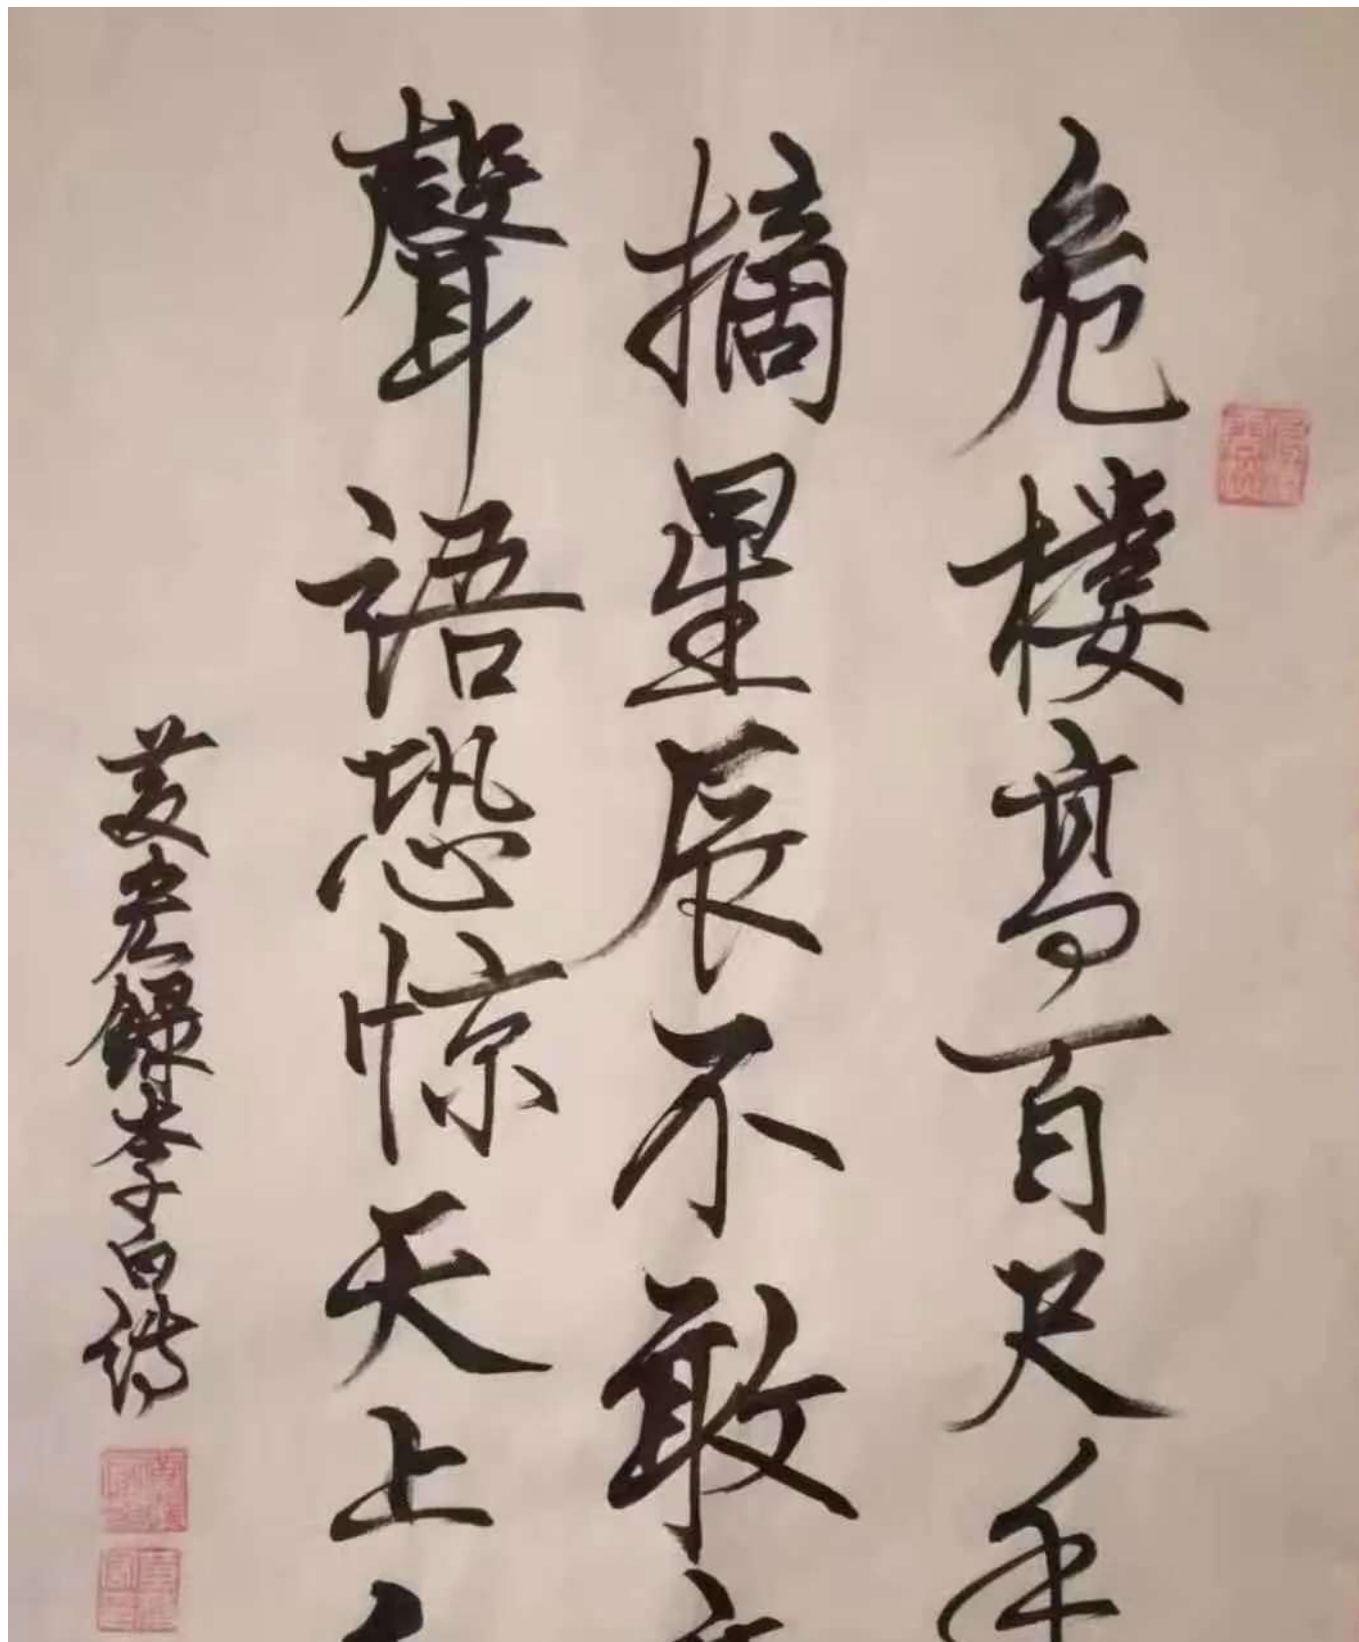 危樓高百尺手
摘星辰不敢高
聲語恐惊天上人
錄李白詩